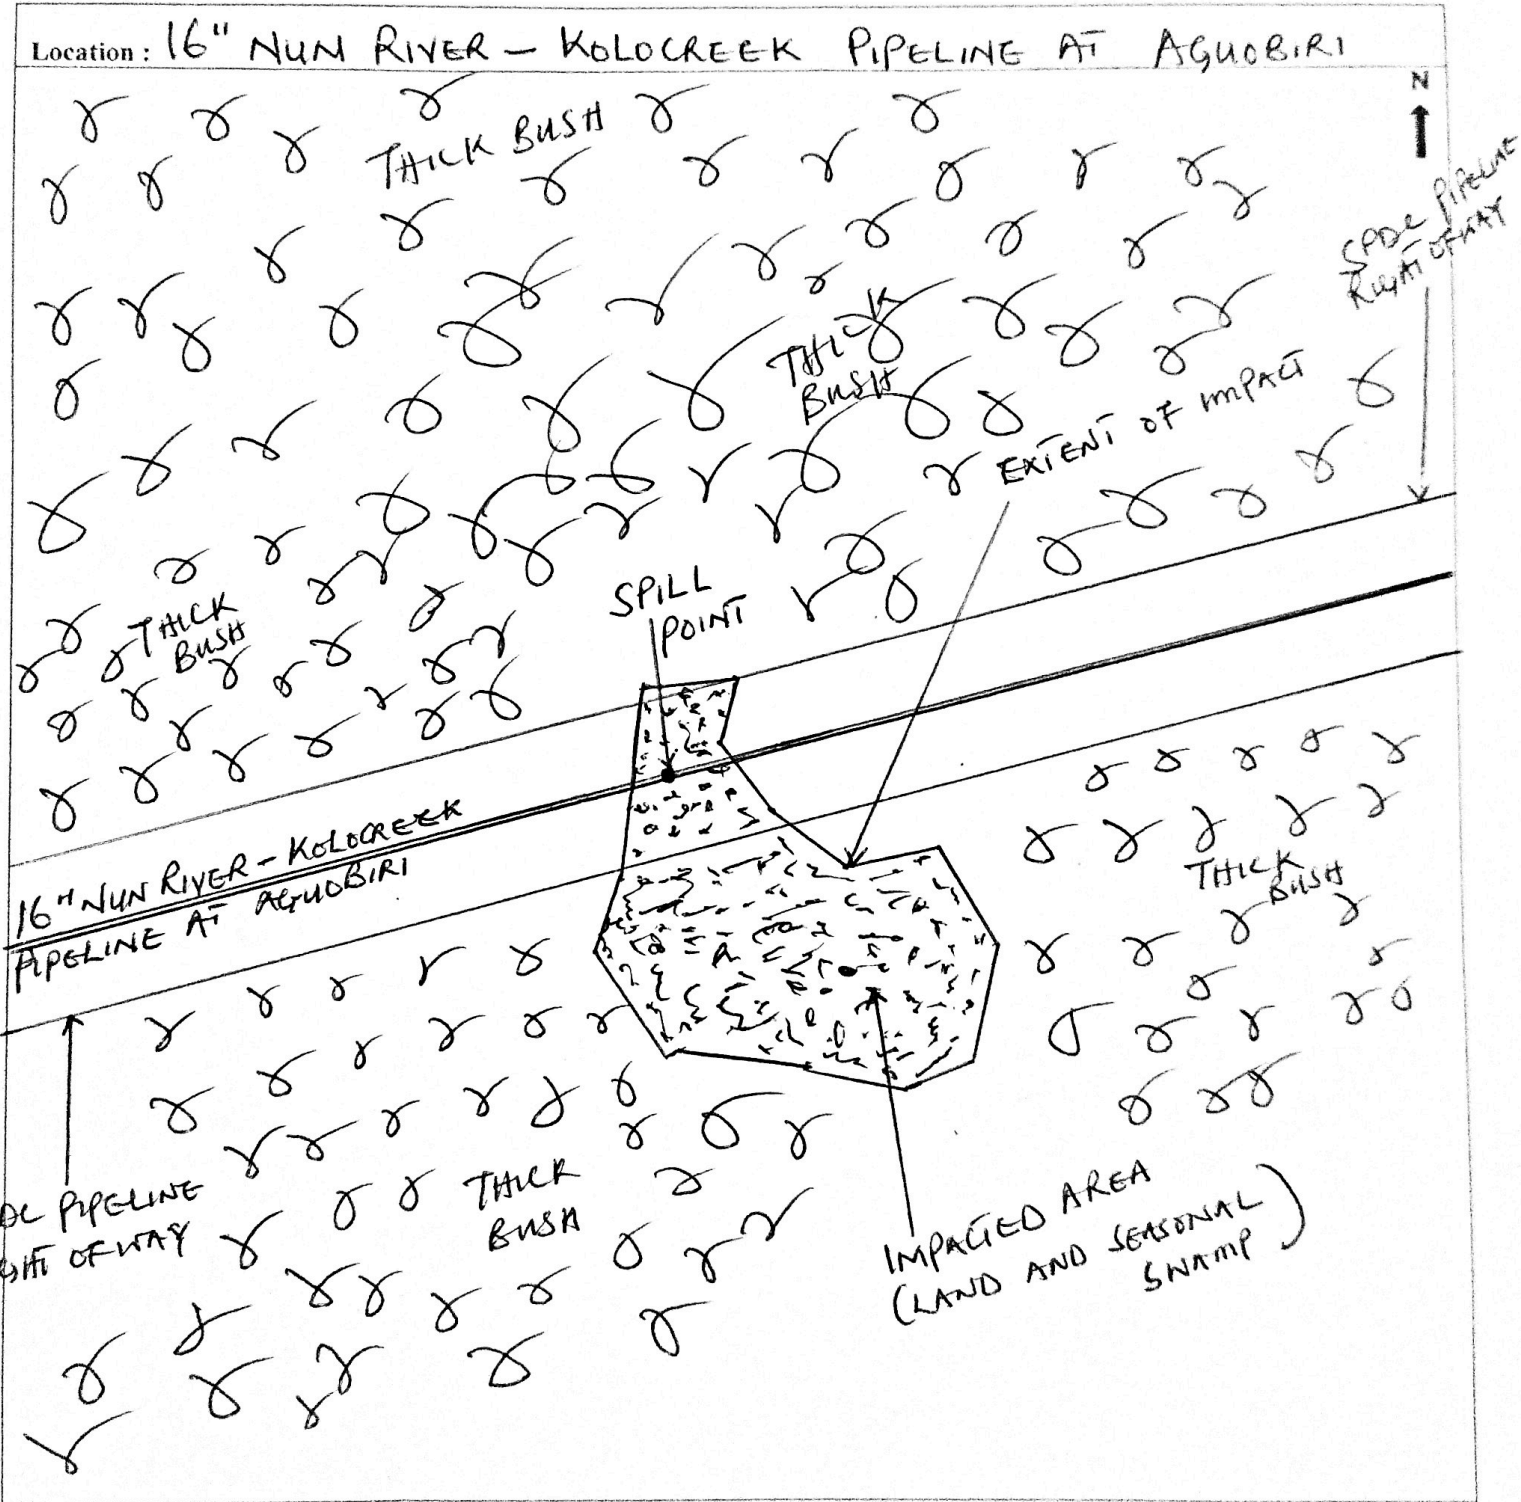 Location : 16" NUN RIVER - KOLOCREEK PIPELINE AT AGUOBIRI
N
THICK BUSH
SPDC PIPELINE
RIGHT OF WAY
THICK
BUSH
EXTENT OF IMPACT
SPILL
POINT
THICK
BUSH
16" NUN RIVER - KOLOCREEK
PIPELINE AT AGUOBIRI
THICK
BUSH
DC PIPELINE
GHT OF WAY
THICK
BUSH
IMPACTED AREA
(LAND AND SEASONAL
SWAMP)